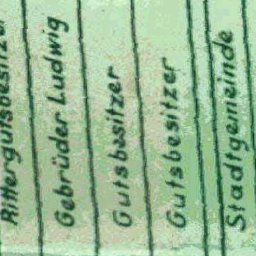 Rittergutsbesitzer
Gebrüder Ludwig
Gutsbesitzer
Gutsbesitzer
Stadtgemeinde